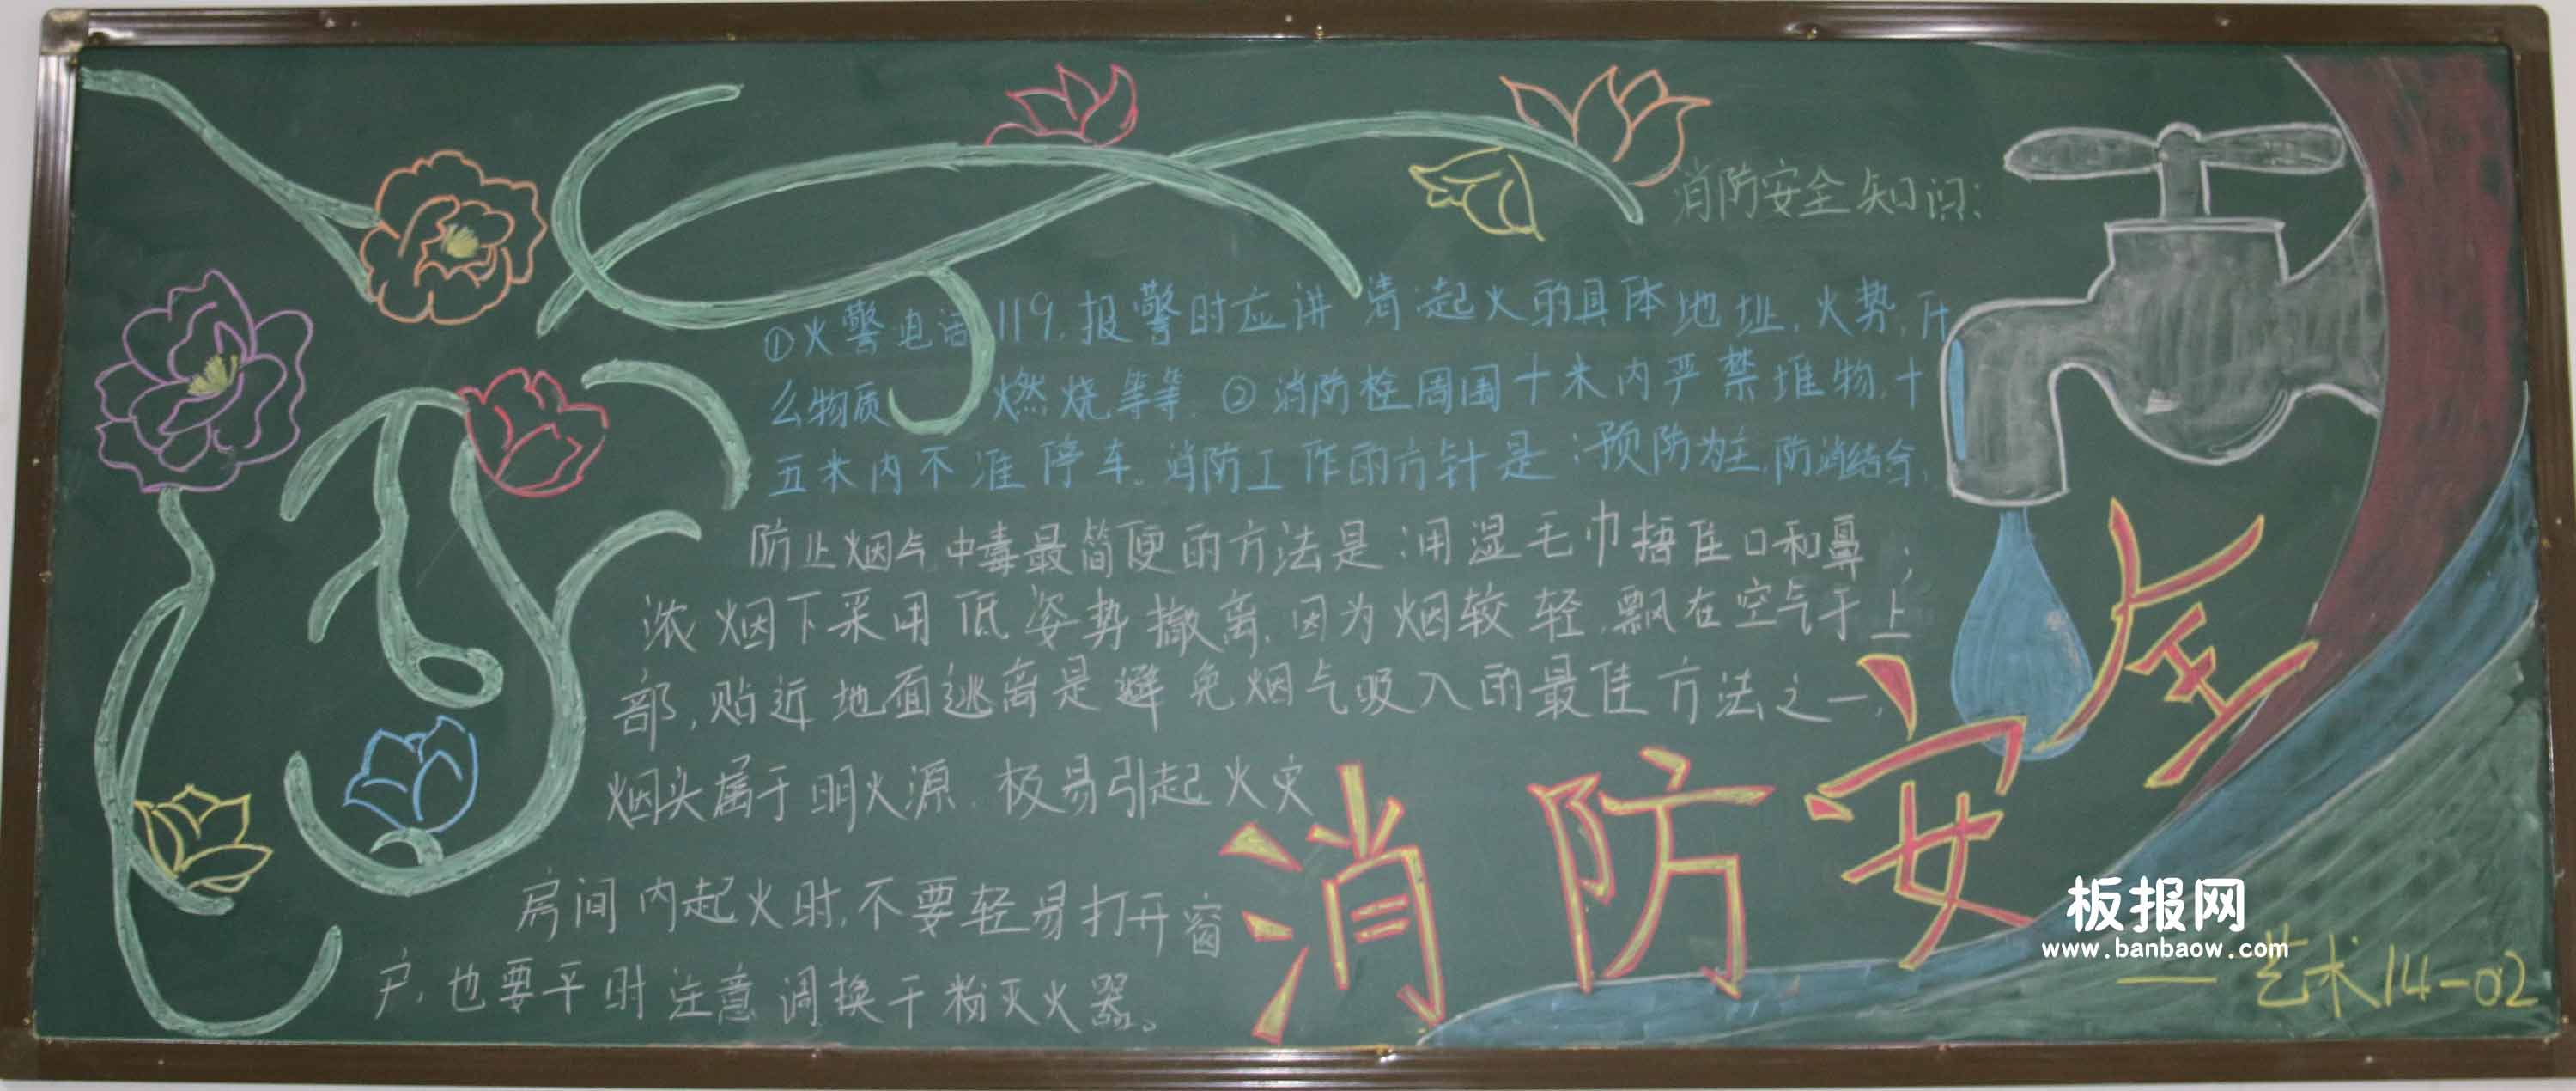 消防安全知识:
①火警电话119.报警时应讲清起火的具体地址,火势,什
么物质燃烧等等.②消防栓周围十米内严禁堆物,十
五米内不准停车。消防工作的方针是:预防为主,防消结合,
防止烟气中毒最简便的方法是:用湿毛巾捂住口和鼻;
浓烟下采用低姿势撤离,因为烟较轻,飘在空气于上
部,贴近地面逃离是避免烟气吸入的最佳方法之一,
烟头属于明火源.极易引起火灾
房间内起火时,不要轻易打开窗
户,也要平时注意调换干粉灭火器。
消防安全
板报网
www.banbaow.com
—艺术14-02